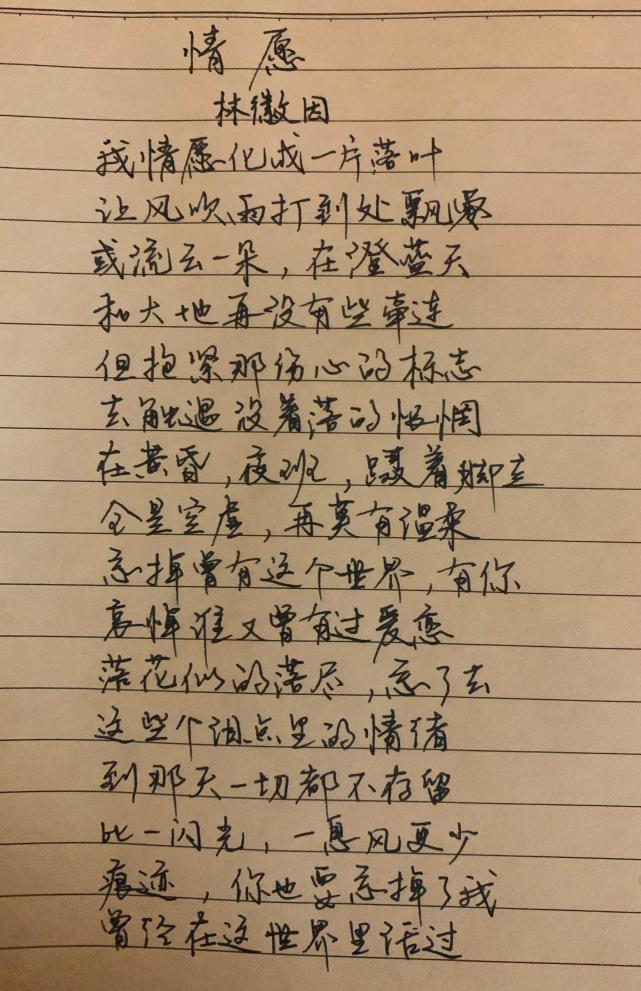 情愿
林徽因
我情愿化成一片落叶
让风吹雨打到处飘零
或流云一朵，在澄蓝天
和大地再没有些牵连
但抱紧那伤心的标志
去触遇没着落的怅惘
在黄昏，夜班，蹑着脚走
全是空虚，再莫有温柔
忘掉曾有这个世界，有你
哀悼谁又曾有过爱恋
落花似的落尽，忘了去
这些个泪点里的情绪
到那天一切都不存留
比一闪光，一息风更少
痕迹，你也要忘掉了我
曾经在这世界里活过